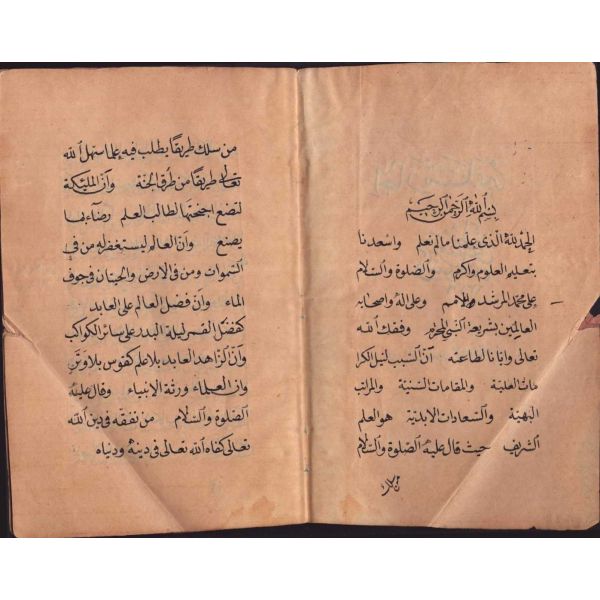 بسم الله الرحمن الرحيم
الحمد لله الذى علمنا مالم نعلم واسعدنا
بتعليم العلوم واكرم والصلوة والسلام
على محمد المرشد للامم وعلى اله واصحابه
العالمين بشريعة النبى المحترم وفقك الله
تعالى وايانا لطاعته ان السبب لنيل الكرا
مات العلية والمقامات السنية والمراتب
البهية والسعادات الابدية هو العلم
الشريف حيث قال عليه الصلوة والسلام
من سلك
من سلك طريقا يطلب فيه علما سهل الله
تعالى طريقا من طرق الجنة وان الملئكة
لتضع اجنحتها لطالب العلم رضاء بما
يصنع وان العالم ليستغفر له من فى
السموات ومن فى الارض والحيتان فى جوف
الماء وان فضل العالم على العابد
كفضل القمر ليلة البدر على سائر الكواكب
وان الزاهد العابد بلا علم كقوس بلا وتر
وان العلماء ورثة الانبياء وقال عليه
الصلوة والسلام من تفقه فى دين الله
تعالى كفاه الله تعالى فى دينه ودنياه